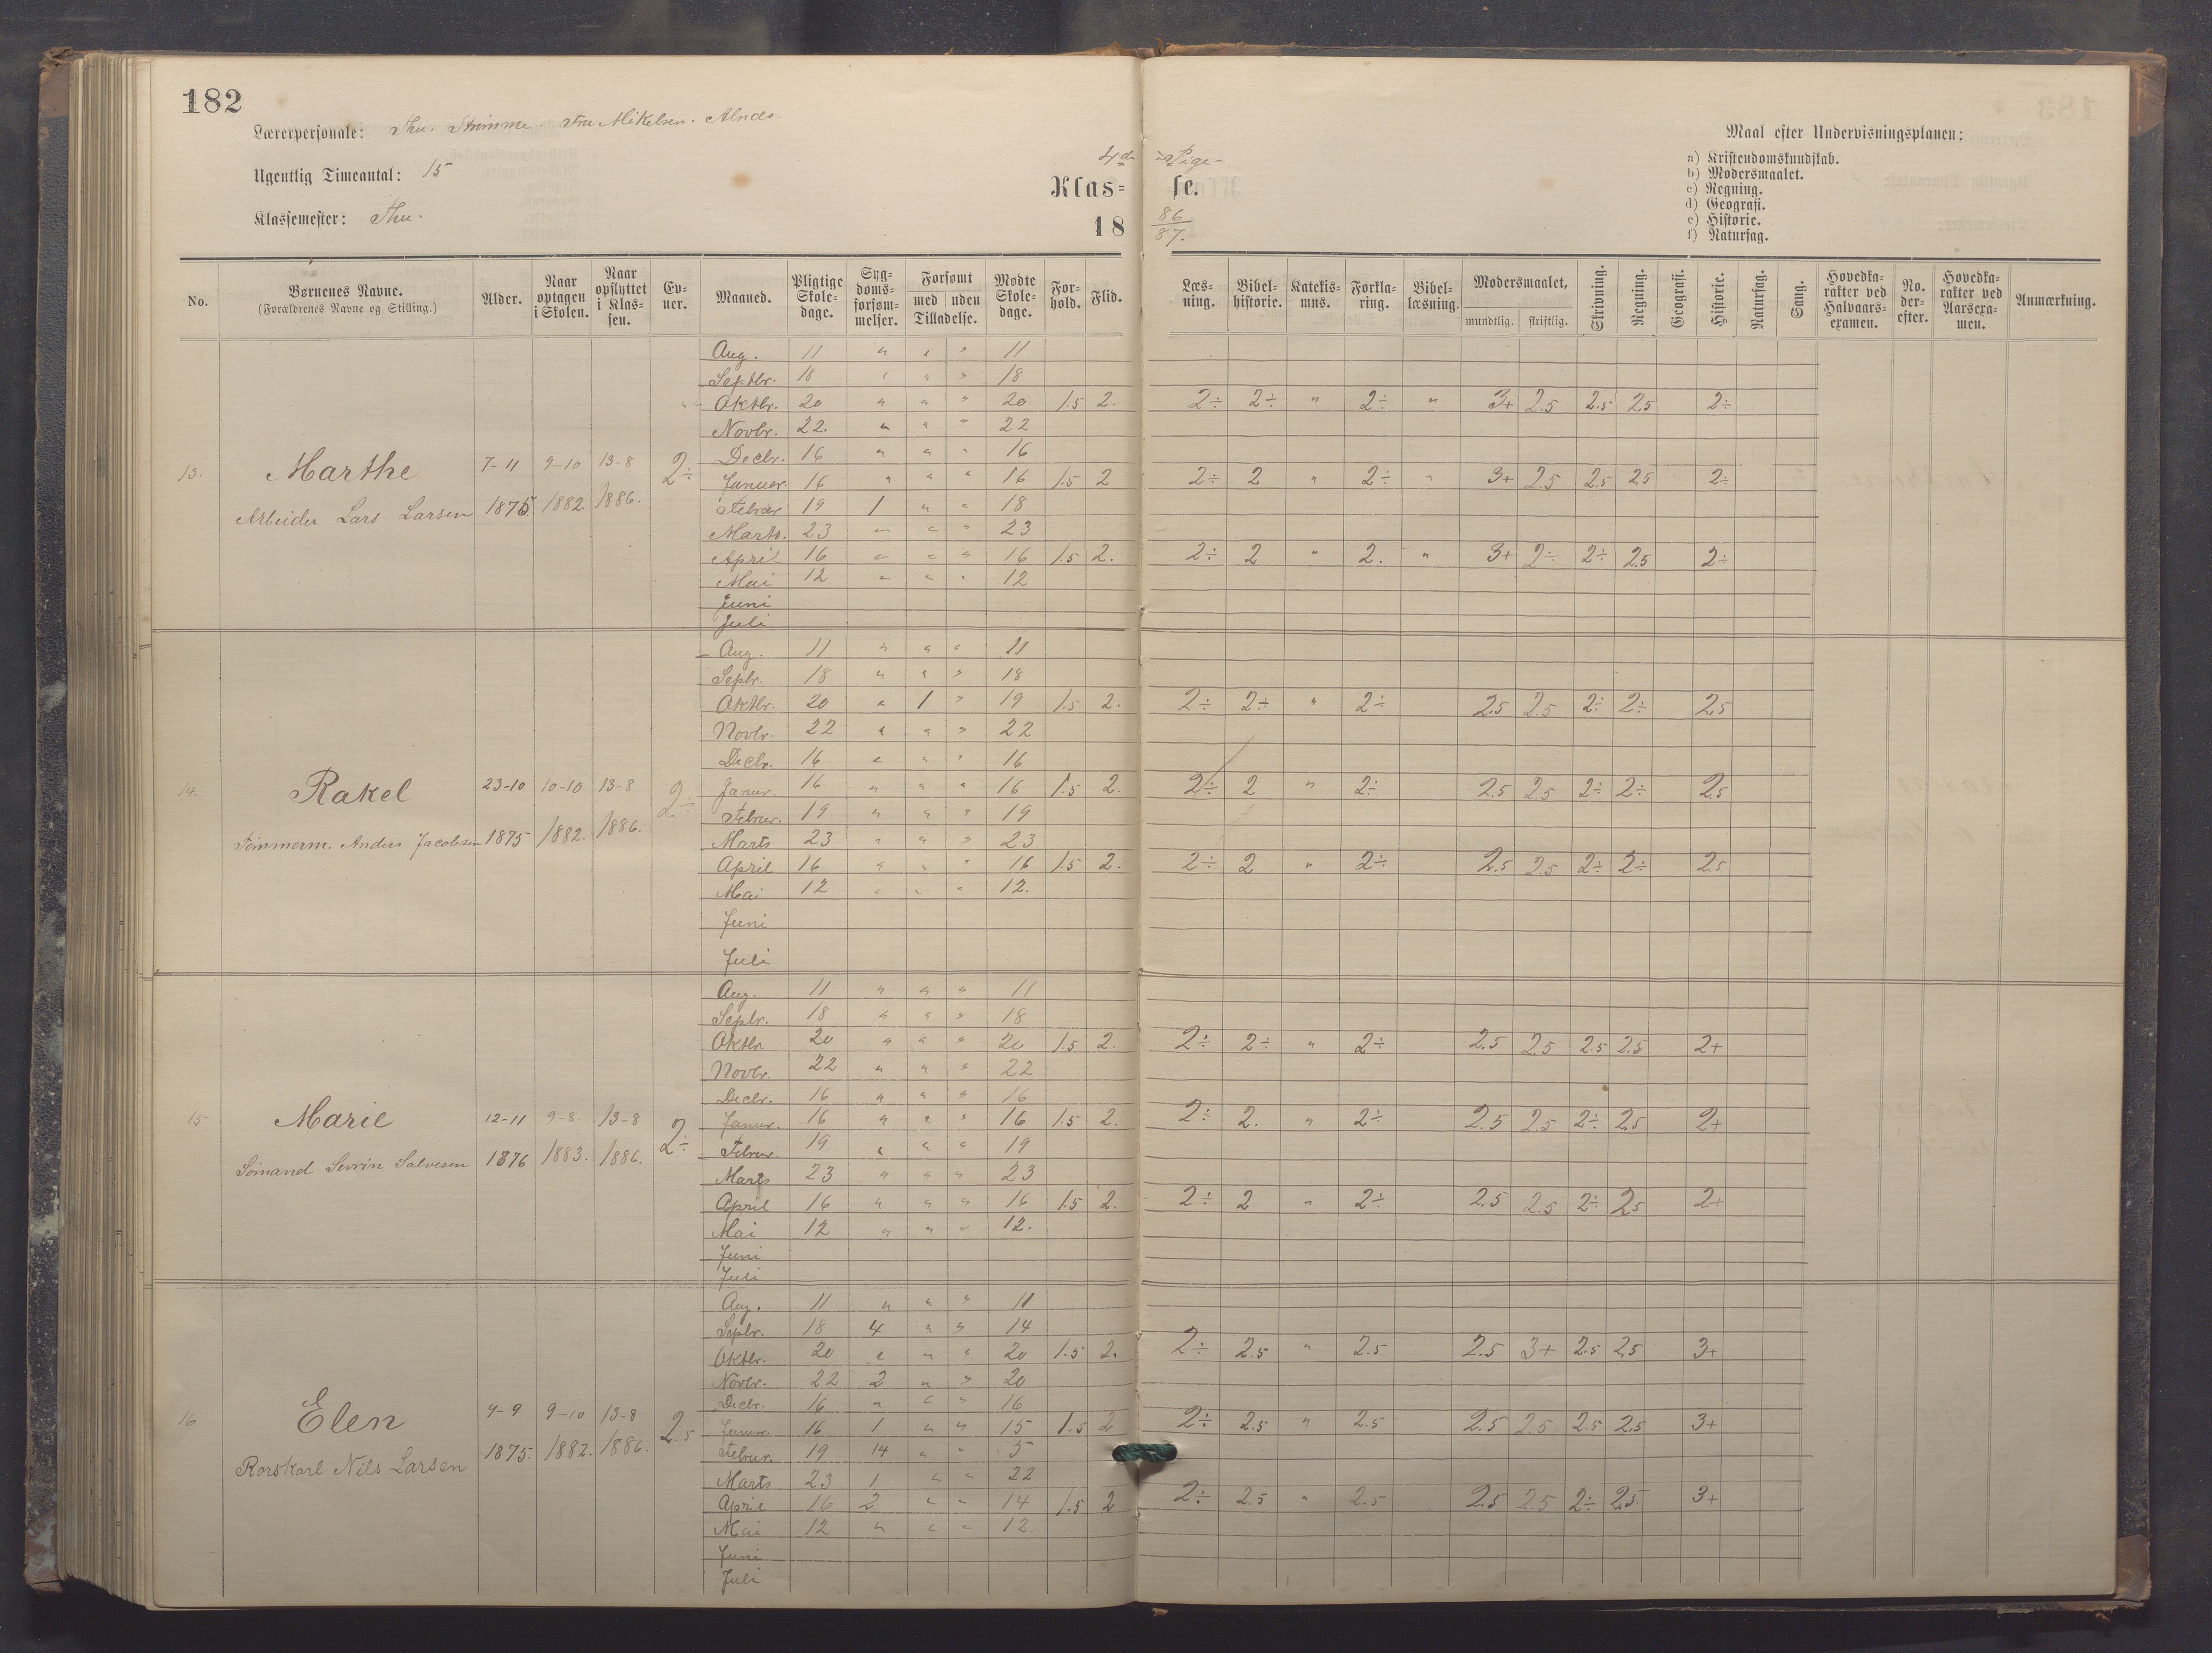 182
Lærerpersonale: Thu. Strømme Fru Mikelsen. Alnds.
Ugentlig Timeantal: 15
Klassemester: Thu.
4de Pige-
Klas= se.
18 86/87.
Maal efter Undervisningsplanen:
a) Kristendomskundskab.
b) Modersmaalet.
c) Regning.
d) Geografi.
e) Historie.
f) Naturfag.
No. | Børnenes Navne. (Forældrenes Navne og Stilling.) | Alder. | Naar optagen i Skolen. | Naar opflyttet i Klas-sen. | Ev-ner. | Maaned. | Pligtige Skole-dage. | Syg-doms-forsøm-melser. | Forsømt med uden Tilladelse. | Mødte Skole-dage. | For-hold. | Flid. | Læs-ning. | Bibel-historie. | Katekis-mus. | Forkla-ring. | Bibel-læsning. | Modersmaalet, mundtlig. skriftlig. | Skrivning. | Regning. | Geografi. | Historie. | Naturfag. | Sang. | Hovedka-rakter ved Halvaars-examen. | No. der-efter. | Hovedka-rakter ved Aarsexa-men. | Anmærkning.
13. Marthe 7-11 9-10 13-8 2÷
Arbeider Lars Larsen 1875. 1882. 1886.
Aug. 11 " " " 11
Septbr. 18 " " " 18
Oktbr. 20 " " " 20 1.5 2. 2÷ 2÷ " 2÷ " 3+ 2.5 2.5 2.5 2÷
Novbr. 22. " " " 22
Decbr. 16 " " " 16
Januar. 16 " " " 16 1.5 2 2÷ 2 " 2÷ " 3+ 2.5 2.5 2.5 2÷
Februar 19 1 " " 18
Marts. 23 " " " 23
April 16 " " " 16 1.5 2. 2÷ 2 " 2. " 3+ 2÷ 2÷ 2.5 2÷
Mai 12 " " " 12
Juni
Juli
14. Rakel 23-10 10-10 13-8 2÷
Tømmerm. Anders Jacobsen 1875 1882. 1886.
Aug. 11 " " " 11
Sepbr. 18 " " " 18
Oktbr. 20 " 1 " 19 1.5 2. 2÷ 2÷ " 2÷ 2.5 2.5 2÷ 2÷ 2.5
Novbr. 22 " " " 22
Decbr. 16 " " " 16
Janur. 16 " " " 16 1.5 2. 2÷ 2 " 2÷ 2.5 2.5 2÷ 2÷ 2.5
Februar. 19 " " " 19
Marts 23 " " " 23
April 16 " " " 16 1.5 2. 2÷ 2 " 2÷ 2.5 2.5 2÷ 2÷ 2.5
Mai 12 " " " 12.
Juni
Juli
15 Marie 12-11 9-8. 13-8 2÷
Sømand Sevrin Salvesen 1876 1883. 1886.
Aug. 11 " " " 11
Sepbr. 18 " " " 18
Oktbr 20 " " " 20 1.5 2. 2÷ 2÷ " 2÷ 2.5 2.5 2.5 2.5 2+
Novbr. 22 " " " 22
Decbr. 16 " " " 16
Janur. 16 " " " 16 1.5 2. 2÷ 2. " 2÷ 2.5 2.5 2÷ 2.5 2+
Februar 19 " " " 19
Marts 23 " " " 23
April 16 " " " 16 1.5 2. 2÷ 2 " 2÷ 2.5 2.5 2÷ 2.5 2+
Mai 12 " " " 12.
Juni
Juli
16 Elen 9-10 13-8 2.5
Rorskarl Nils Larsen 1875. 1882. 1886.
Aug. 11 " " " 11
Sepbr. 18 4 " " 14
Oktbr. 20 " " " 20 1.5 2. 2÷ 2.5 " 2.5 2.5 3+ 2.5 2.5 3+
Novbr. 22 2 " " 20
Decbr. 16 " " " 16
Janur. 16 1 " " 15 1.5 2 2÷ 2.5 " 2.5 2.5 2.5 2.5 2.5 3+
Februar. 19 14 " " 5
Marts 23 1 " " 22
April 16 2 " " 14 1.5 2 2÷ 2.5 " 2.5 2.5 2.5 2÷ 2.5 3+
Mai 12 " " " 12.
Juni
Juli